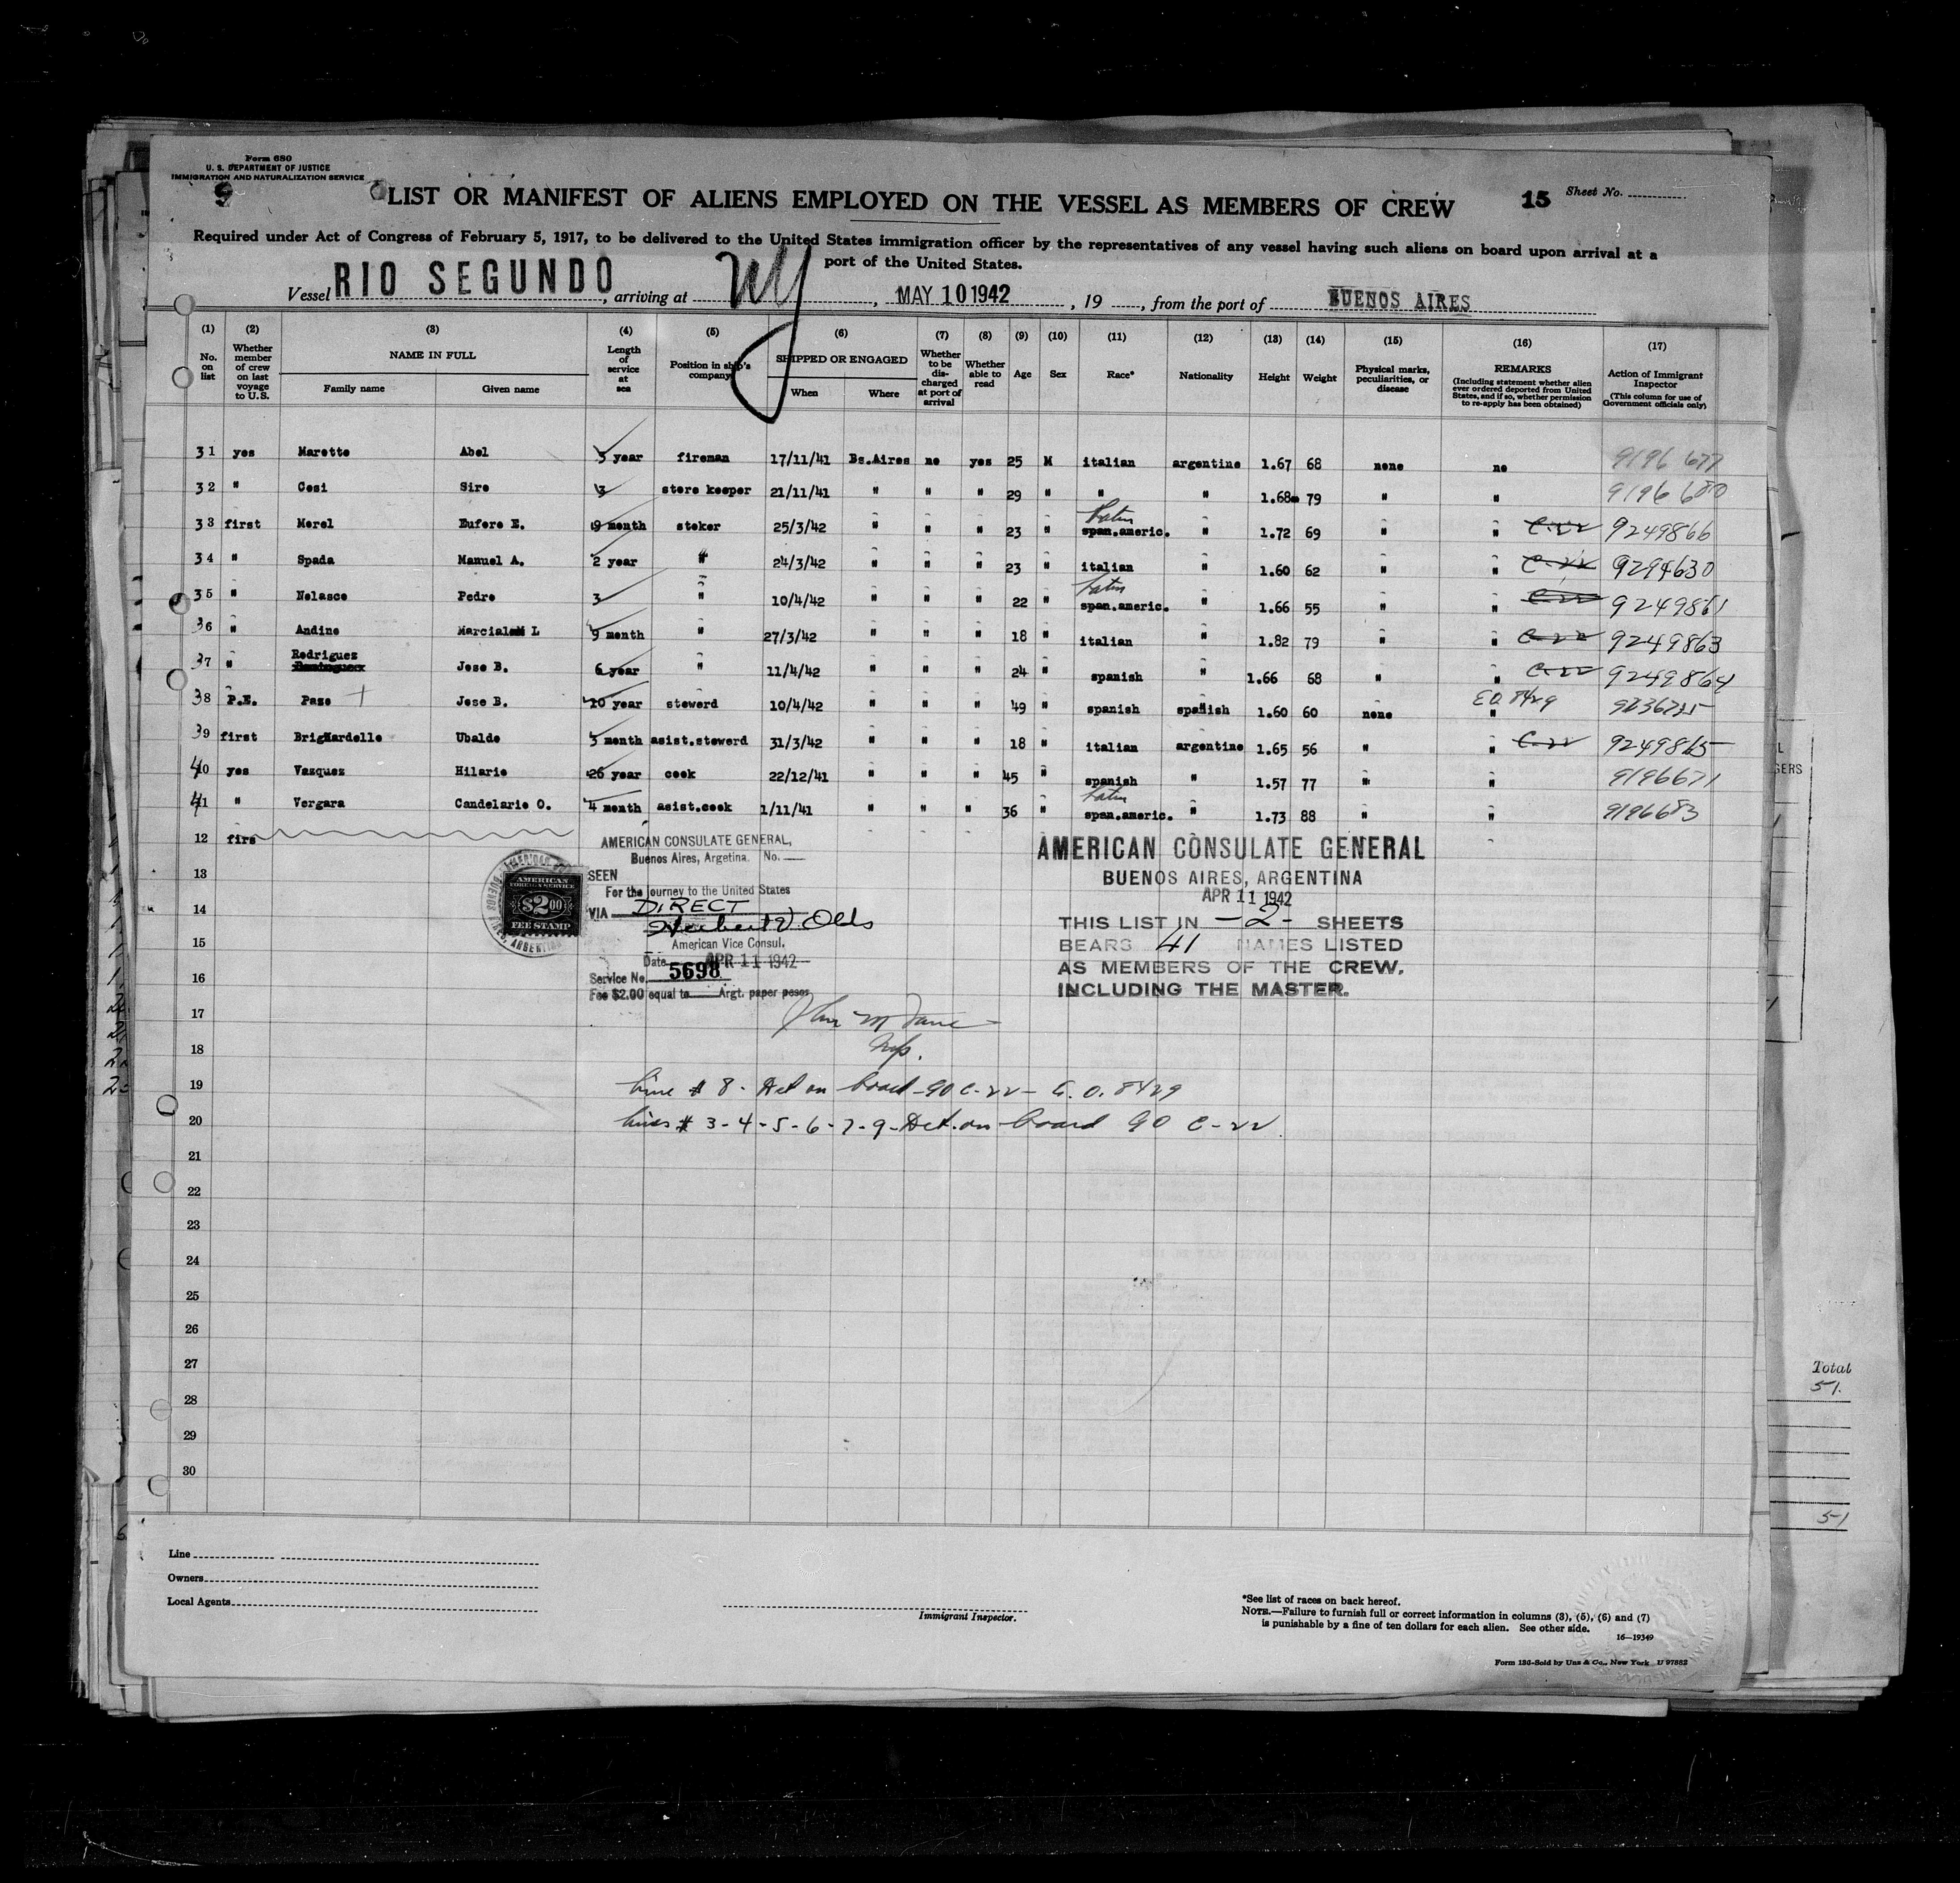 Form 680
U. S. DEPARTMENT OF JUSTICE
IMMIGRATION AND NATURALIZATION SERVICE
9
LIST OR MANIFEST OF ALIENS EMPLOYED ON THE VESSEL AS MEMBERS OF CREW
15 Sheet No.
Required under Act of Congress of February 5, 1917, to be delivered to the United States immigration officer by the representatives of any vessel having such aliens on board upon arrival at a
port of the United States.
Vessel RIO SEGUNDO, arriving at NY, MAY 10 1942, 19, from the port of BUENOS AIRES
(1) (2) (3) (4) (5) (6) (7) (8) (9) (10) (11) (12) (13) (14) (15) (16) (17)
No. on list
Whether member of crew on last voyage to U.S.
NAME IN FULL
Family name Given name
Length of service at sea
Position in ship's company
SHIPPED OR ENGAGED
When Where
Whether to be discharged at port of arrival
Whether able to read
Age
Sex
Race*
Nationality
Height
Weight
Physical marks, peculiarities, or disease
REMARKS
(Including statement whether alien ever ordered deported from United States, and if so, whether permission to re-apply has been obtained)
Action of Immigrant Inspector
(This column for use of Government officials only)
31 yes Marette Abel 3 year fireman 17/11/41 Bs.Aires no yes 25 M italian argentine 1.67 68 none no 9196 677
32 " Cesi Siro 3 store keeper 21/11/41 " " " 29 " " " 1.68 79 " " 9196 680
33 first Morel Eufore E. 9 month stoker 25/3/42 " " " 23 " span.americ. Latin " 1.72 69 " " C-22 9249866
34 " Spada Manuel A. 2 year " 24/3/42 " " " 23 " italian " 1.60 62 " " C-22 9294630
35 " Nolasco Pedro 3 " 10/4/42 " " " 22 " span.americ. Latin " 1.66 55 " " C-22 9249861
36 " Andino Marcial L 9 month " 27/3/42 " " " 18 " italian " 1.82 79 " " C-22 9249863
37 " Rodriguez Jose B. 6 year " 11/4/42 " " " 24 " spanish " 1.66 68 " " C-22 9249864
38 P.E. Pazo Jose B. 10 year steward 10/4/42 " " " 49 " spanish spanish 1.60 60 none " EO 8429
39 first Brignardello Ubaldo 3 month asist.steward 31/3/42 " " " 18 " italian argentine 1.65 56 " " C-22 9249865
40 yes Vazquez Hilario 26 year cook 22/12/41 " " " 45 " spanish " 1.57 77 " " 9196671
41 " Vergara Candelario O. 4 month asist.cook 1/11/41 " " " 36 " span.americ. Latin " 1.73 88 " " 9196683
12 firs
13
14
15
16
17
18
19
20
21
22
23
24
25
26
27
28
29
30
AMERICAN CONSULATE GENERAL,
Buenos Aires, Argetina. No.
SEEN
For the journey to the United States
VIA DIRECT
Herbert V. Olds
American Vice Consul.
Date APR 11 1942
Service No. 5698
Fee $2.00 equal to Argt. paper pesos
AMERICAN
FOREIGN SERVICE
$2.00
FEE STAMP
AMERICAN CONSULATE GENERAL
BUENOS AIRES, ARGENTINA
APR 11 1942
THIS LIST IN -2- SHEETS
BEARS 41 NAMES LISTED
AS MEMBERS OF THE CREW.
INCLUDING THE MASTER.
Insp.
Line # 8 - Det on board - 90 C-22 - E.O. 8429
Lines # 3-4-5-6-7-9- Det. on board 90 C-22
Line
Owners
Local Agents
Immigrant Inspector.
*See list of races on back hereof.
NOTE.—Failure to furnish full or correct information in columns (3), (5), (6) and (7)
is punishable by a fine of ten dollars for each alien. See other side.
16—19349
Form 136-Sold by Unz & Co., New York U 97882
Total
51.
51